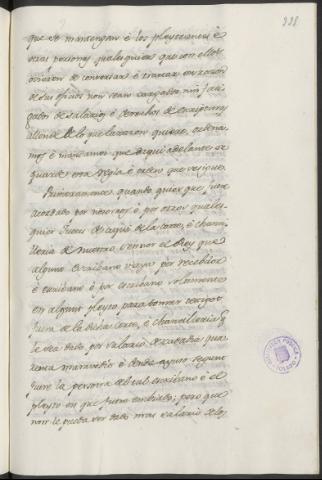 338
que se mantengan é los pleyteantes é
otras personas qualesquier que con ellos
ovieren de conversar é tractar en razon
de sus oficios non sean cargados nin fati-
gados de salarios é derechos de escripturas
allende de lo que la razon quiere, ordena-
mos é mandamos que de aqui adelante se
guarde esta regla é orden que se sigue.
Primeramente quando quier que fuere
acordado por nosotros é por otros quales-
quier Jueces de aqui de la corte, é chan-
cilleria de nuestro Sennor el Rey que
algund escribano vaya por recebtor
é escribano é por escribano solamente
en algund pleyto para tomar testigos
fuera de la dicha corte, é chancilleria q
le sea dado por salario de cada dia qua-
renta maravedis é dende ayuso segunt
fuere la persona del tal escribano é el
pleyto en que fuere embiado; pero que
non le pueda ser dado mas salario de los